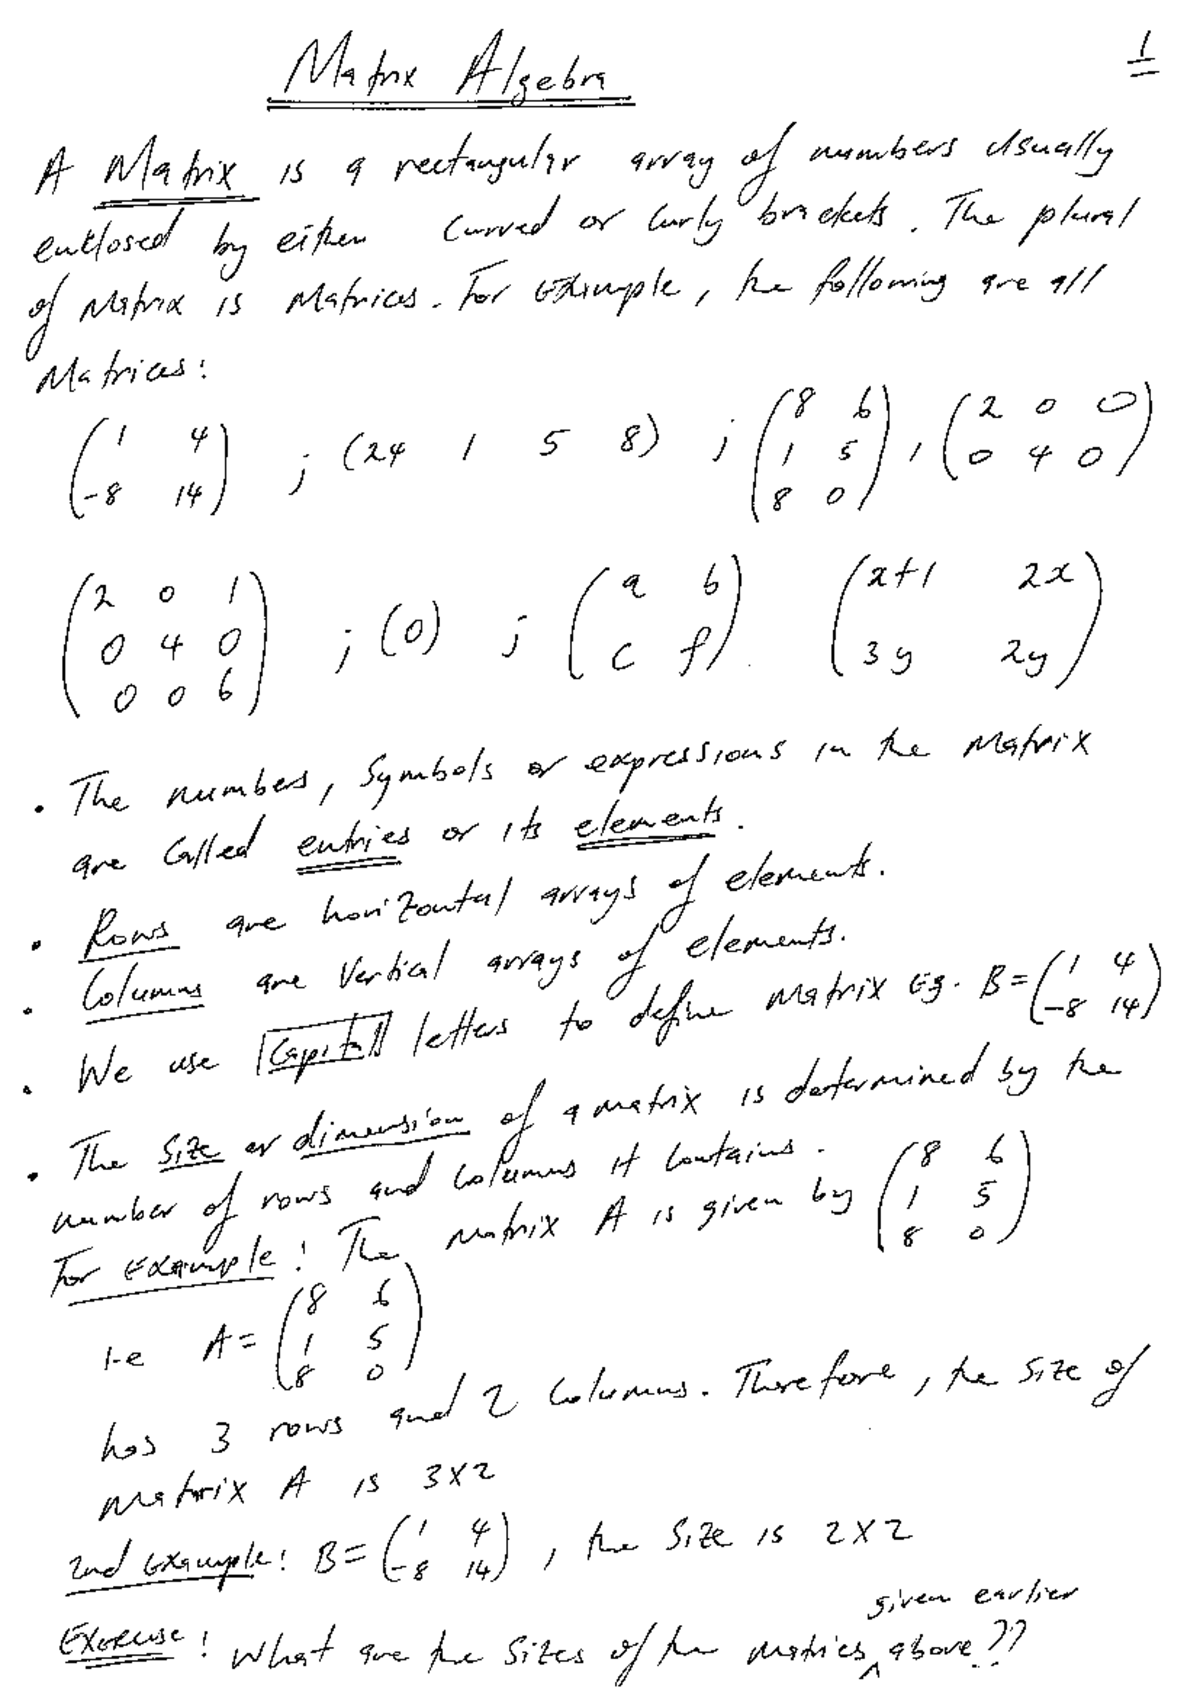 Matrix Algebra
1
A Matrix is a rectangular array of numbers usually
enclosed by either curved or curly brackets. The plural
of Matrix is Matrices. For Example, the following are all
Matrices:
( 1 4 ; -8 14 ) ; (24 1 5 8) ; ( 8 6 ; 1 5 ; 8 0 ) , ( 2 0 0 ; 0 4 0 )
( 2 0 1 ; 0 4 0 ; 0 0 6 ) ; (0) ; ( a b ; c f ). ( x+1 2x ; 3y 2y )
. The numbers, Symbols or expressions in the Matrix
are Called entries or its elements.
. Rows are horizontal arrays of elements.
. Columns are Vertical arrays of elements.
. We use Capital letters to define Matrix Eg. B = ( 1 4 ; -8 14 )
. The Size or dimension of a matrix is determined by the
number of rows and Columns it Contains.
For Example: The Matrix A is given by ( 8 6 ; 1 5 ; 8 0 )
i-e A = ( 8 6 ; 1 5 ; 8 0 )
has 3 rows and 2 Columns. Therefore, the Size of
Matrix A is 3x2
2nd Example: B = ( 1 4 ; -8 14 ) , the Size is 2x2
Exercise: What are the Sizes of the matrices ^ given earlier above??